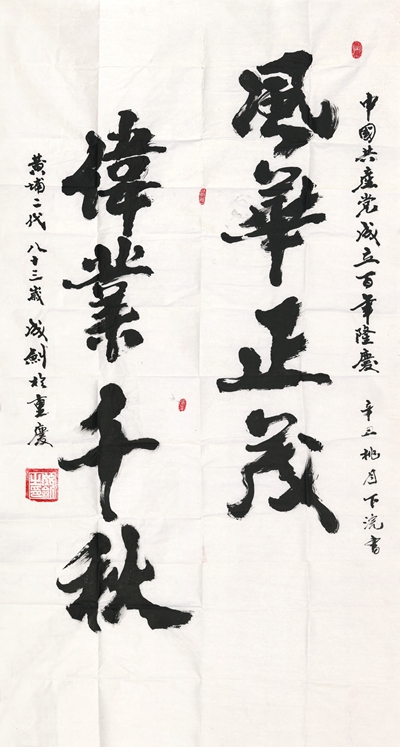 中國共產党成立百年隆慶 辛丑桃月下浣書
風華正茂
偉業千秋
黃埔二代 八十三歲 成劍於重慶